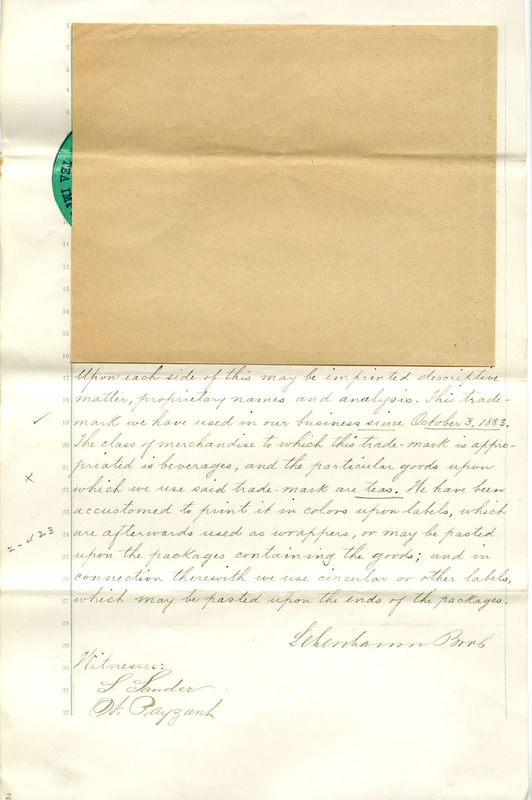 TEA IM
Upon each side of this may be imprinted descriptive
matter, proprietary names and analysis. This trade-
mark we have used in our business since October 3, 1883.
The class of merchandise to which this trade-mark is appro-
priated is beverages, and the particular goods upon
which we use said trade-mark are teas. We have been
accustomed to print it in colors upon labels, which
are afterwards used as wrappers, or may be pasted
upon the packages containing the goods; and in
connection therewith we use circular or other labels,
which may be pasted upon the ends of the packages.
Bros
Witnesses:
L. Sander
W. Payzant
2